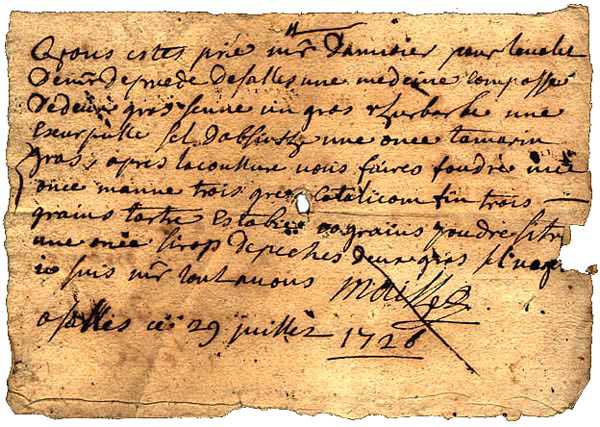 Vous estes prié mr Damidier pour levalet
De mr de pruede desalles une medecine Composseé
De deux gros senne un gros rhurbarbe une
sel dabsinthe une once tamarin
gras, apres lacoulture vous faires foudre une
once manne trois gros Catalicom fin trois
grains tartre Estabié 20 grains poudre
une once sirop depeches deux gros
ie suis mr tout avous Maille
asalles ce 29 juillet 1726